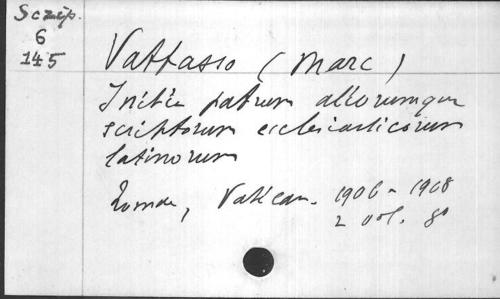 Scrip.
6
145
Vattasso (Marc)
Initia patrum aliorumque
scriptorum ecclesiasticorum
latinorum
Rome, Vatican. 1906-1908
2 vol. 8°